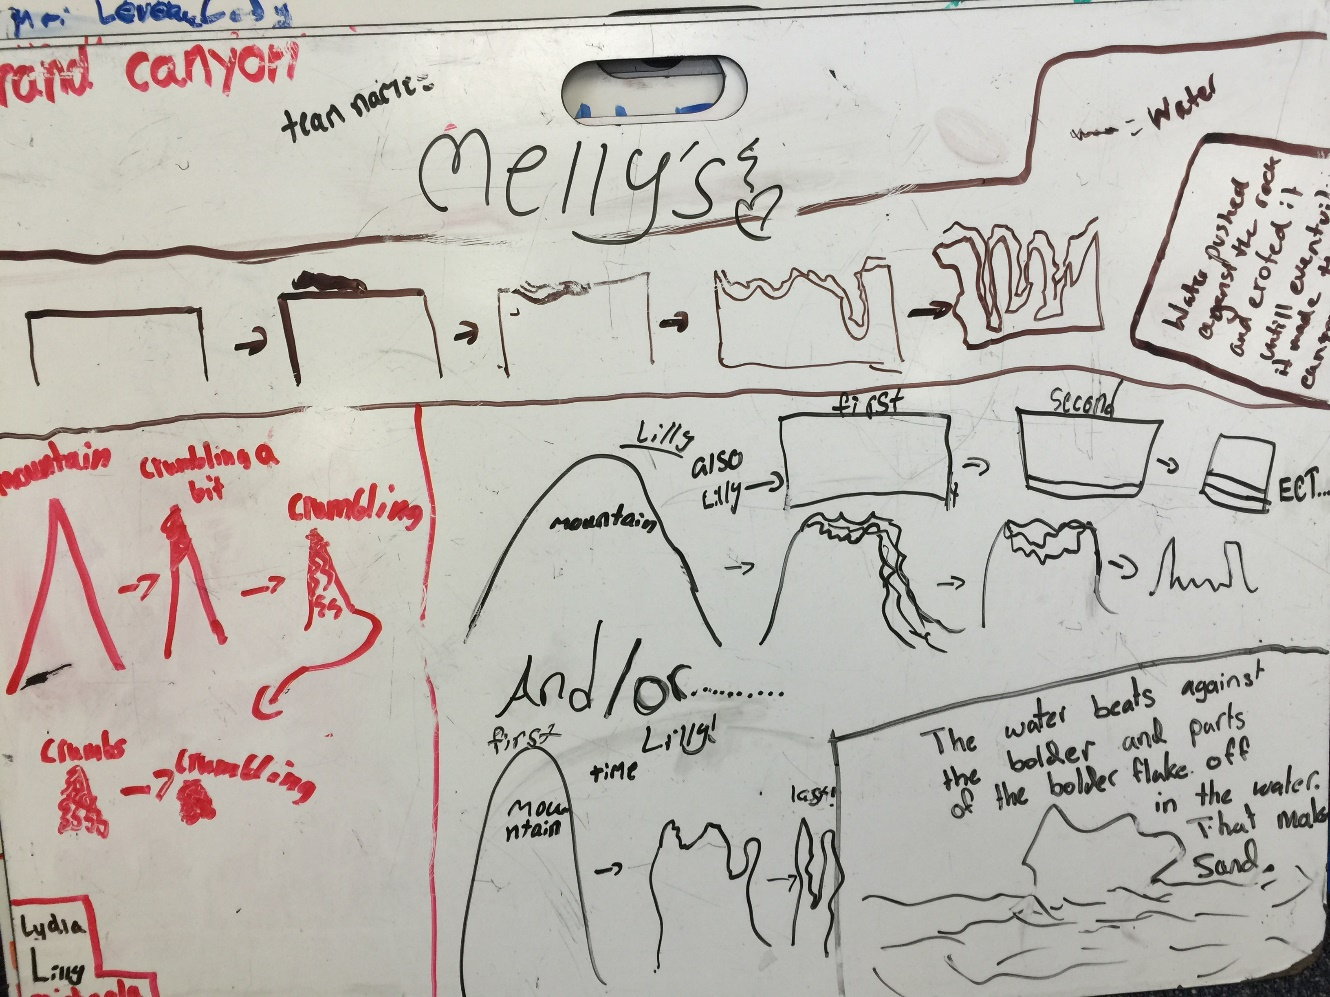 rand canyon
team name:
Melly's
= Water
Water pushed
against the rock
and eroted it
untill eventuil
it made the
canyon
mountain
crumbling a
bit
crumbling
crumbs
crumbling
Lydia
Lilly
Lilly
also
Lilly
first
second
ECT...
mountain
And/or..........
first
Lilly!
time
mou
ntain
last!
The water beats against
the bolder and parts
of the bolder flake off
in the water.
That make
Sand.